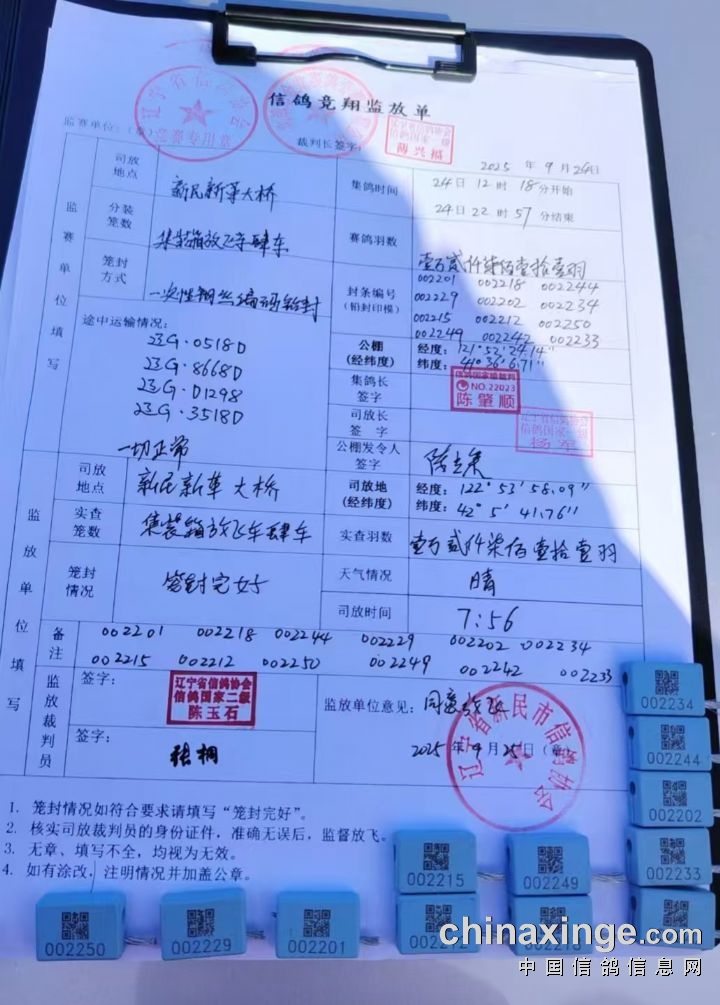 信鸽竞翔监放单
辽宁省信鸽协会
竞赛专用章
监赛单位：（章）
裁判长签字：
辽宁省信鸽协会
信鸽国家一级
2025 年 9 月 24日
司放地点
新民新革大桥
集鸽时间
24日 12时 18分开始
24日 22时 57分结束
分装笼数
集装箱放飞车肆车
赛鸽羽数
壹万贰仟柒佰壹拾壹羽
笼封方式
一次性钢丝编码铅封
封条编号
(铅封印模)
002201 002218 002244
002229 002202 002234
002215 002212 002250
002249 002242 002233
监赛单位填写
途中运输情况：
辽G·0518D
辽G·8668D
辽G·D1298
辽G·3518D
一切正常
公棚
(经纬度)
经度：121°52'24.14"
纬度：41°36'6.71"
集鸽长签字
信鸽国家级裁判
NO.22023
陈肇顺
司放长签字
辽宁省信鸽协会
信鸽国家一级
杨军
公棚发令人签字
司放地点
新民新革大桥
司放地
(经纬度)
经度：122°53'58.09"
纬度：42°5'41.76"
实查笼数
集装箱放飞车肆车
实查羽数
壹万贰仟柒佰壹拾壹羽
监放单位填写
笼封情况
笼封完好
天气情况
晴
司放时间
7:56
备注
002201 002218 002244 002229 002202 002234
002215 002212 002250 002249 002242 002233
监放裁判员
签字：
辽宁省信鸽协会
信鸽国家二级
陈玉石
签字：
监放单位意见：同意放飞
辽宁省新民市信鸽协会
2025 年 9 月 25日（章）
1. 笼封情况如符合要求请填写“笼封完好”。
2. 核实司放裁判员的身份证件，准确无误后，监督放飞。
3. 无章、填写不全，均视为无效。
4. 如有涂改，注明情况并加盖公章。
002234
002244
002202
002233
002215
002249
002250
002229
002201
002212
chinaxinge.com
中国信鸽信息网